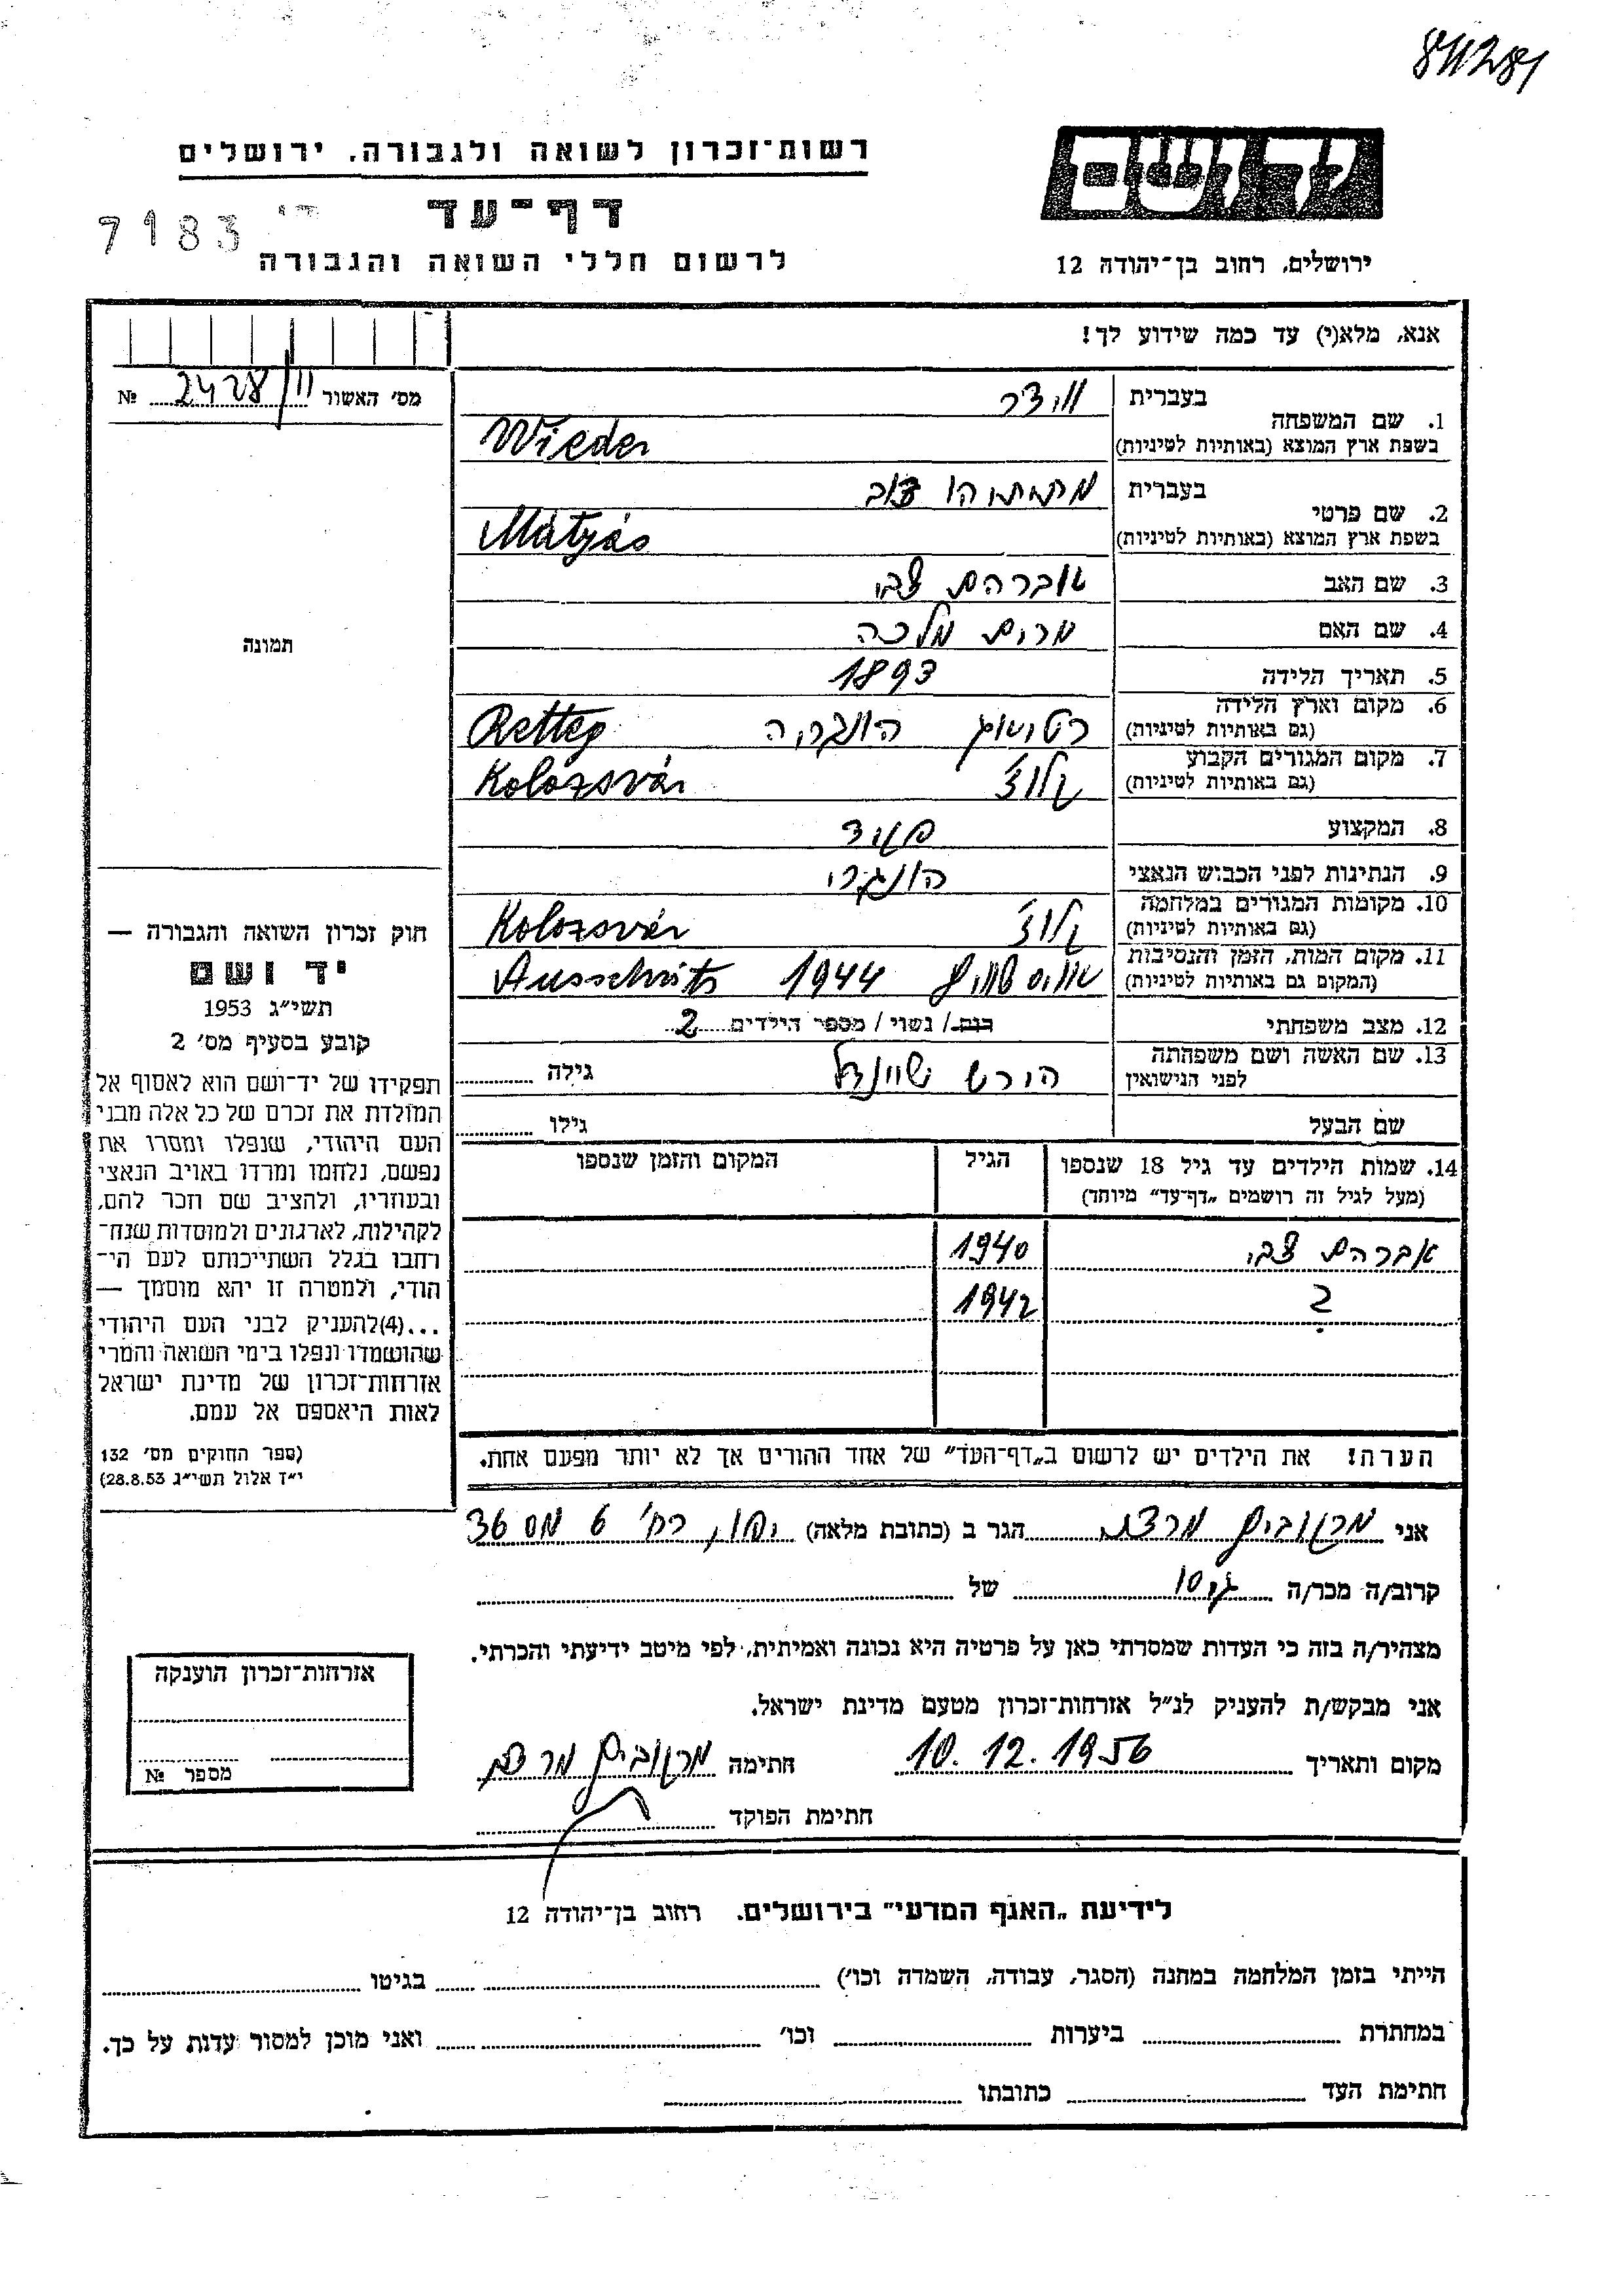 841281
יד ושם
רשות־זכרון לשואה ולגבורה, ירושלים
דף־עד
7183
לרשום חללי השואה והגבורה
ירושלים, רחוב בן־יהודה 12
אנא, מלא(י) עד כמה שידוע לך!
מס' האשור 2428/11 №
1. שם המשפחה
בעברית
וידר
בשפת ארץ המוצא (באותיות לטיניות)
Wieder
2. שם פרטי
בעברית
מתתיהו דוב
בשפת ארץ המוצא (באותיות לטיניות)
Mátyás
3. שם האב
אברהם צבי
4. שם האם
מרים מלכה
5. תאריך הלידה
1893
6. מקום וארץ הלידה
(גם באותיות לטיניות)
הונגריה Retteg
7. מקום המגורים הקבוע
(גם באותיות לטיניות)
קלוז' Kolozsvár
8. המקצוע
פקיד
9. הנתינות לפני הכבוש הנאצי
הונגרי
10. מקומות המגורים במלחמה
(גם באותיות לטיניות)
קלוז' Kolozsvár
11. מקום המות, הזמן והנסיבות
(המקום גם באותיות לטיניות)
1944 Ausschwits
12. מצב משפחתי
רוק / נשוי / מספר הילדים 2
13. שם האשה ושם משפחתה
לפני הנישואין
הירש שיינדל
גילה
שם הבעל
גילו
14. שמות הילדים עד גיל 18 שנספו
(מעל לגיל זה רושמים „דף־עד" מיוחד)
הגיל
המקום והזמן שנספו
אברהם צבי 1940
? 1942
הערה! את הילדים יש לרשום ב„דף־העד" של אחד ההורים אך לא יותר מפעם אחת.
תמונה
חוק זכרון השואה והגבורה —
יד ושם
תשי"ג 1953
קובע בסעיף מס' 2
תפקידו של יד־ושם הוא לאסוף אל
המולדת את זכרם של כל אלה מבני
העם היהודי, שנפלו ומסרו את
נפשם, נלחמו ומרדו באויב הנאצי
ובעוזריו, ולהציב שם וזכר להם,
לקהילות, לארגונים ולמוסדות שנח־
רחבו בגלל השתייכותם לעם הי־
הודי, ולמטרה זו יהא מוסמך —
...(4)להעניק לבני העם היהודי
שהושמדו ונפלו בימי השואה והמרי
אזרחות־זכרון של מדינת ישראל
לאות היאספם אל עמם.
(ספר החוקים מס' 132
י"ז אלול תשי"ג 28.8.53)
אני מרקוביץ הגר ב (כתובת מלאה) רח' 6 מס 36
קרוב/ה מכר/ה גיס של
מצהיר/ה בזה כי העדות שמסרתי כאן על פרטיה היא נכונה ואמיתית, לפי מיטב ידיעתי והכרתי.
אני מבקש/ת להעניק לנ"ל אזרחות־זכרון מטעם מדינת ישראל.
מקום ותאריך 10.12.1956 חתימה מרקוביץ
חתימת הפוקד
אזרחות־זכרון הוענקה
מספר №
לידיעת „האגף המדעי" בירושלים. רחוב בן־יהודה 12
הייתי בזמן המלחמה במחנה (הסגר, עבודה, השמדה וכו') בגיטו
במחתרת ביערות וכו' ואני מוכן למסור עדות על כך.
חתימת העד כתובתו